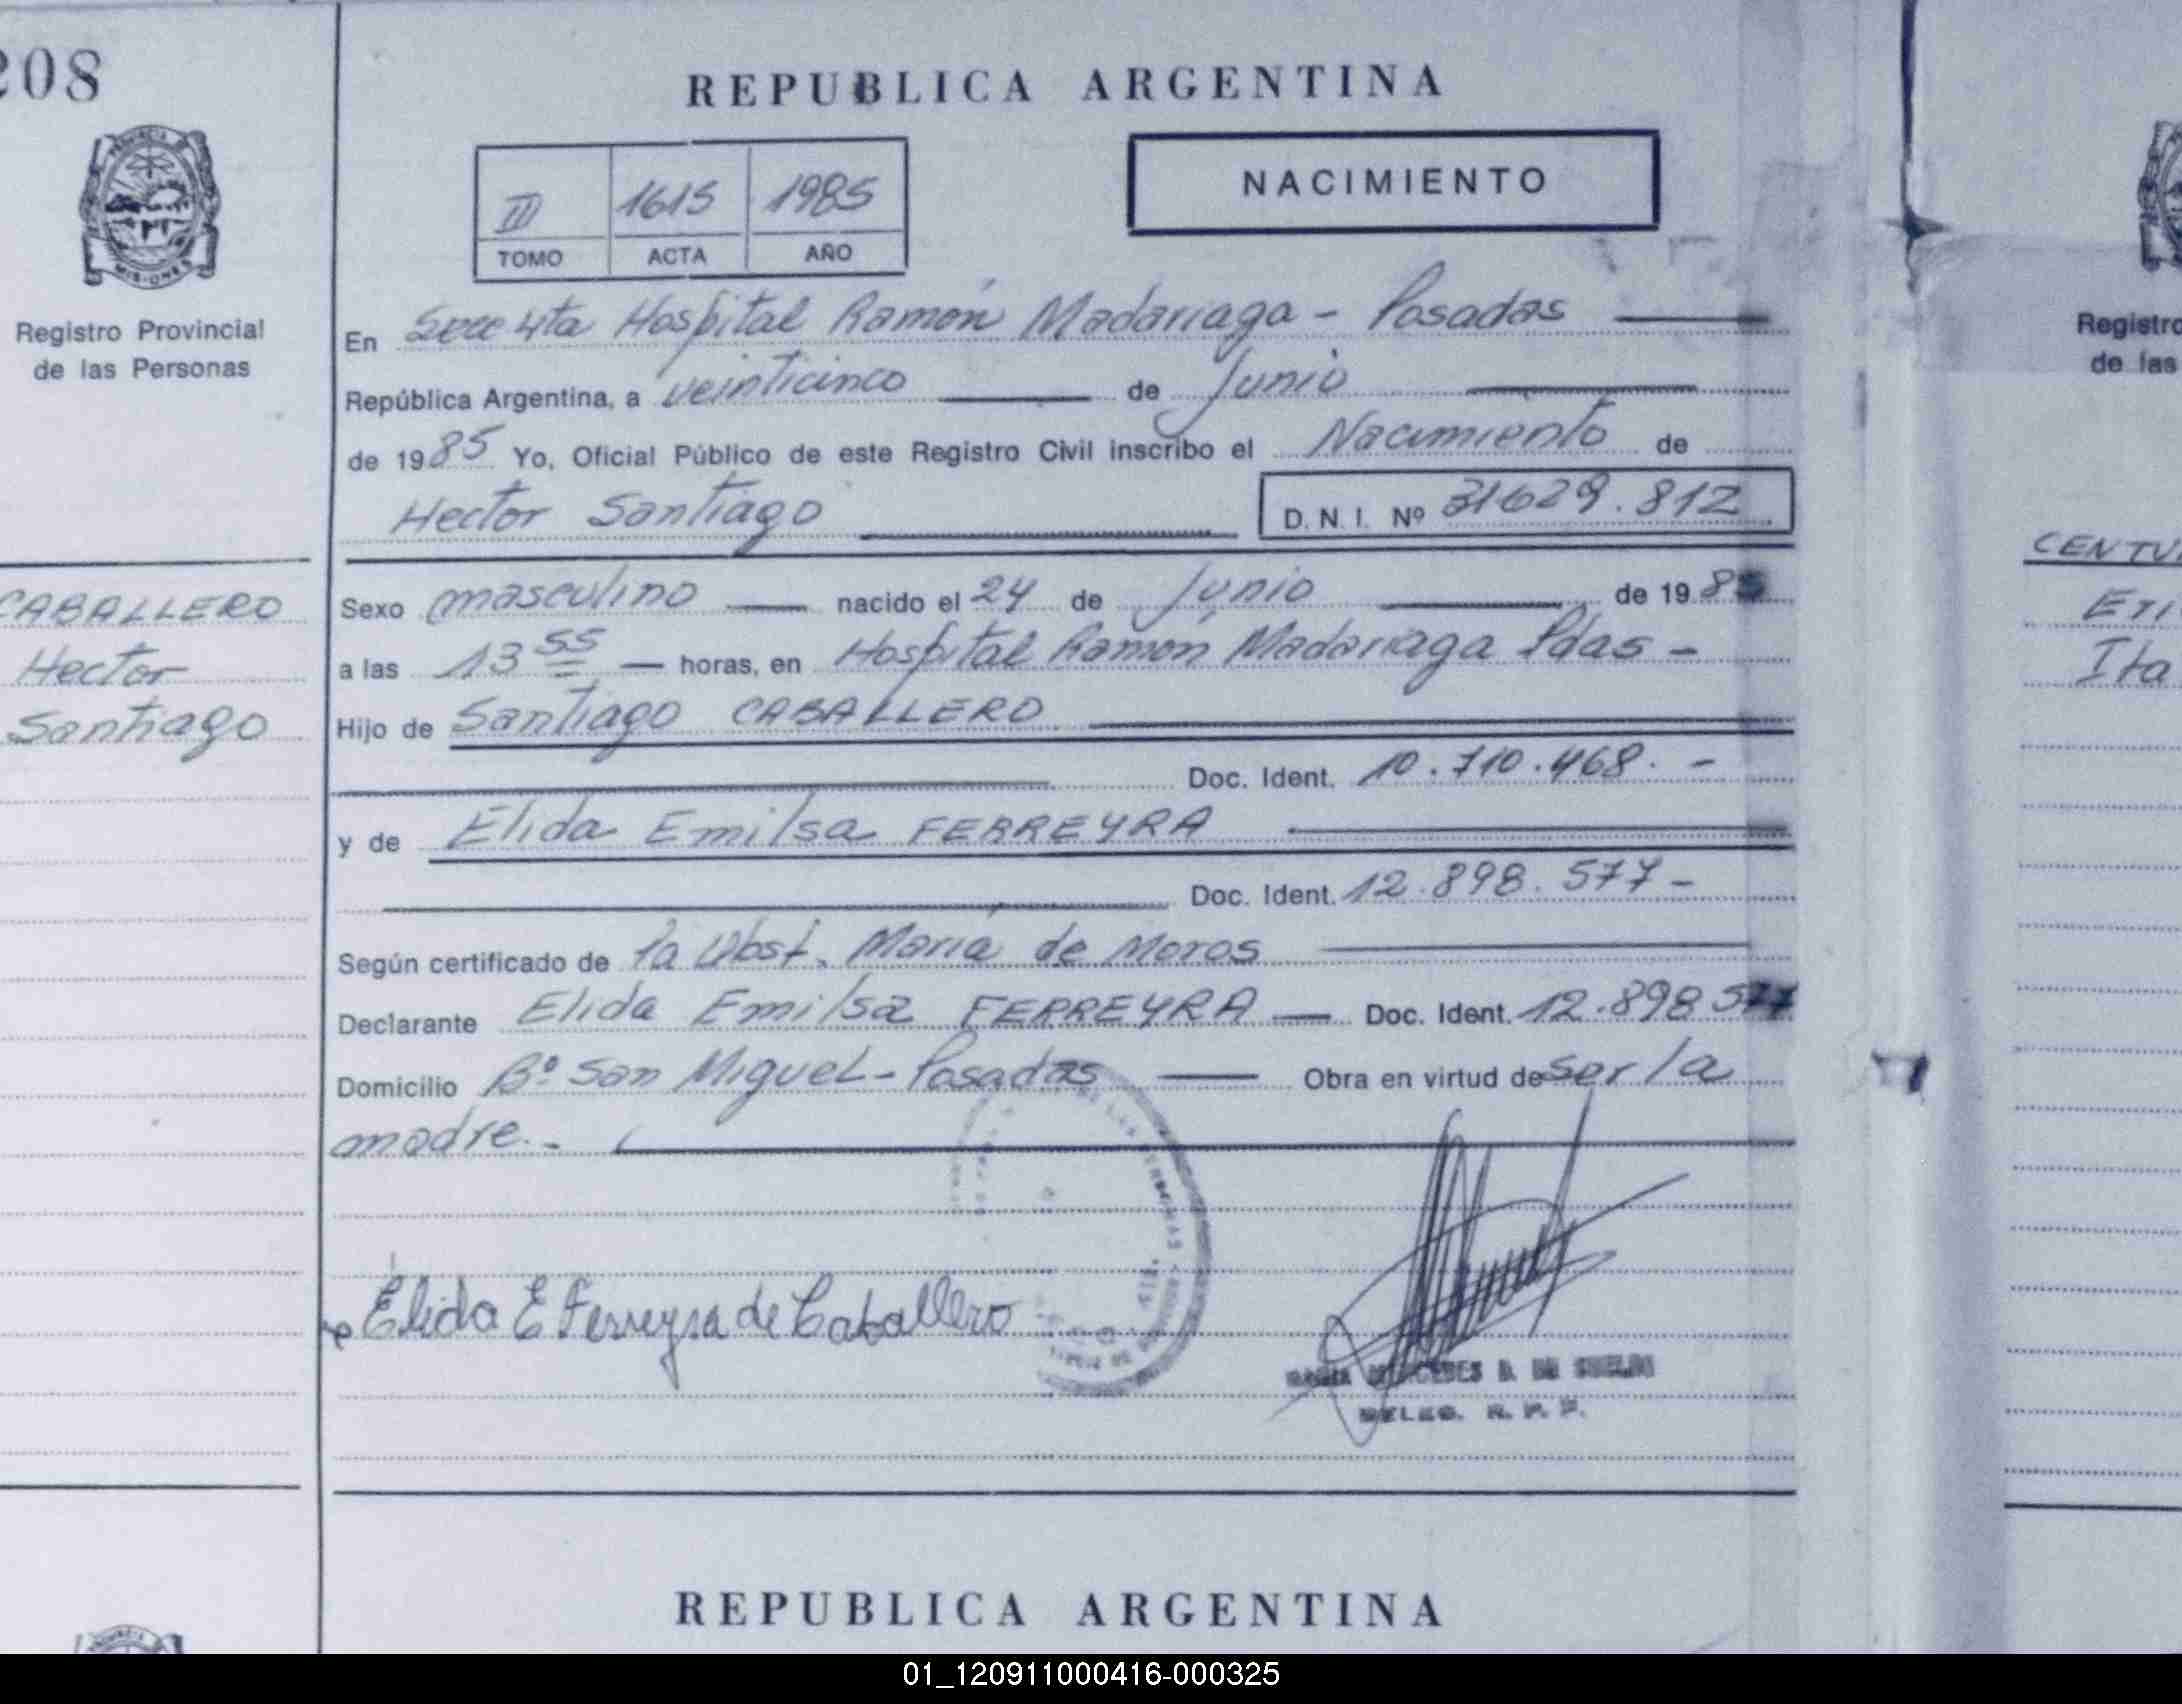 208
REPUBLICA ARGENTINA
III 1615 1985
TOMO ACTA AÑO
NACIMIENTO
PROVINCIA
MISIONES
Registro Provincial
de las Personas
En Secc 4ta Hospital Ramón Madariaga - Posadas
República Argentina, a veinticinco de Junio
de 1985 Yo, Oficial Público de este Registro Civil inscribo el Nacimiento de
Hector Santiago
D.N.I. Nº 31629.812
CABALLERO
Hector
Santiago
Sexo masculino nacido el 24 de Junio de 1985
a las 13 55 horas, en Hospital Ramón Madariaga Pdas -
Hijo de Santiago CABALLERO
Doc. Ident. 10.710.468. -
y de Elida Emilsa FERREYRA
Doc. Ident. 12.898.577 -
Según certificado de la Obst. María de Moros
Declarante Elida Emilsa FERREYRA Doc. Ident. 12.898 577
Domicilio Bº San Miguel - Posadas Obra en virtud de ser la
madre. -
Elida E Ferreyra de Caballero
DELEG. R. P. P.
REPUBLICA ARGENTINA
Registro
de las
CENTU
Eri
Ita
01_120911000416-000325